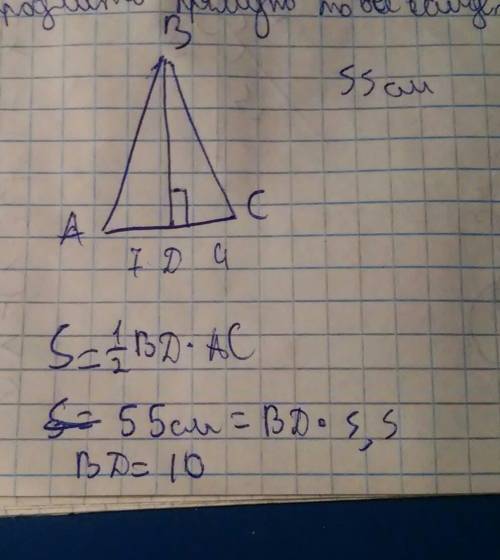 B
55 см
A
C
7 D 4
S = 1/2 BD · AC
S = 55 см = BD · 5,5
BD = 10